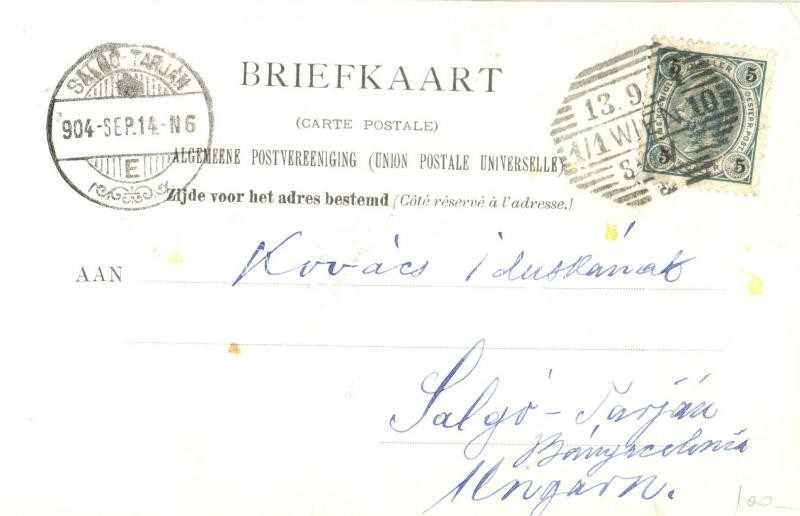 SALGÓ-TARJÁN
904-SEP.14-N6
E
BRIEFKAART
(CARTE POSTALE)
ALGEMEENE POSTVEREENIGING (UNION POSTALE UNIVERSELLE)
Zijde voor het adres bestemd (Côté réservé à l'adresse.)
13.9
1/1 WIEN 10
8
5
5
5
5
AAN
Kovács Iduskának
Salgó-Tarján
Bányacolonia
Ungarn.
100